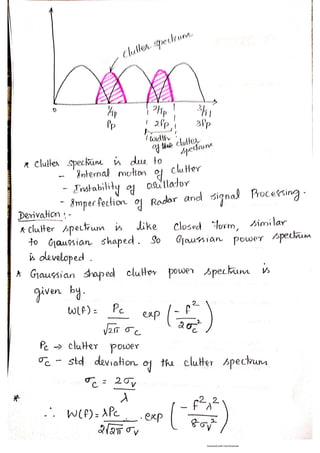 Clutter spectrum
0 1/tp 2/tp 3/tp
fp 2fp 3fp
width
of the clutter
spectrum
* Clutter spectrum is due to
- Internal motion of clutter
- Instability of oscillator
- Imperfection of Radar and signal Processing.
Derivation :-
* clutter spectrum is like closed form, similar
to Gaussian shaped. So Gaussian power spectrum
is developed.
* Gaussian shaped clutter power spectrum is
given by.
W(f) = Pc / √2π σc exp (-f² / 2σc²)
Pc → clutter power
σc - std deviation of the clutter spectrum
σc = 2σv / λ
*
∴ W(f) = λPc / 2√2π σv . exp (-f²λ² / 8σv²)